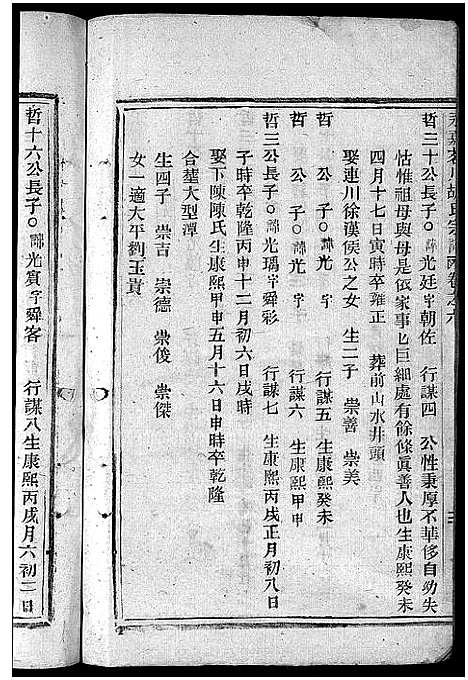 永嘉茗川胡氏宗譜內卷之六
哲三十公長子○諱光廷字朝佐 行謀四 公性秉厚不華侈自幼失
怙惟祖母與母是依家事乜巨細處有餘條真善人也生康熙癸未
四月十七日寅時卒雍正 葬前山水井頭
娶連川徐漢侯公之女 生二子 崇善 崇美
哲 公子○諱光 行謀五 生康熙癸未
哲 公子○諱光 行謀六 生康熙甲申
哲三公長子○諱光瑀字舜彩 行謀七 生康熙丙戌正月初八日
子時卒乾隆丙申十二月初六日戌時
娶下陳陳氏生康熙甲申五月十六日申時卒乾隆
合塟大型潭
生四子 崇吉 崇德 崇俊 崇傑
女一適大平劉玉貴
哲十六公長子○諱光賓字舜客 行謀八生康熙丙戌月六初三日